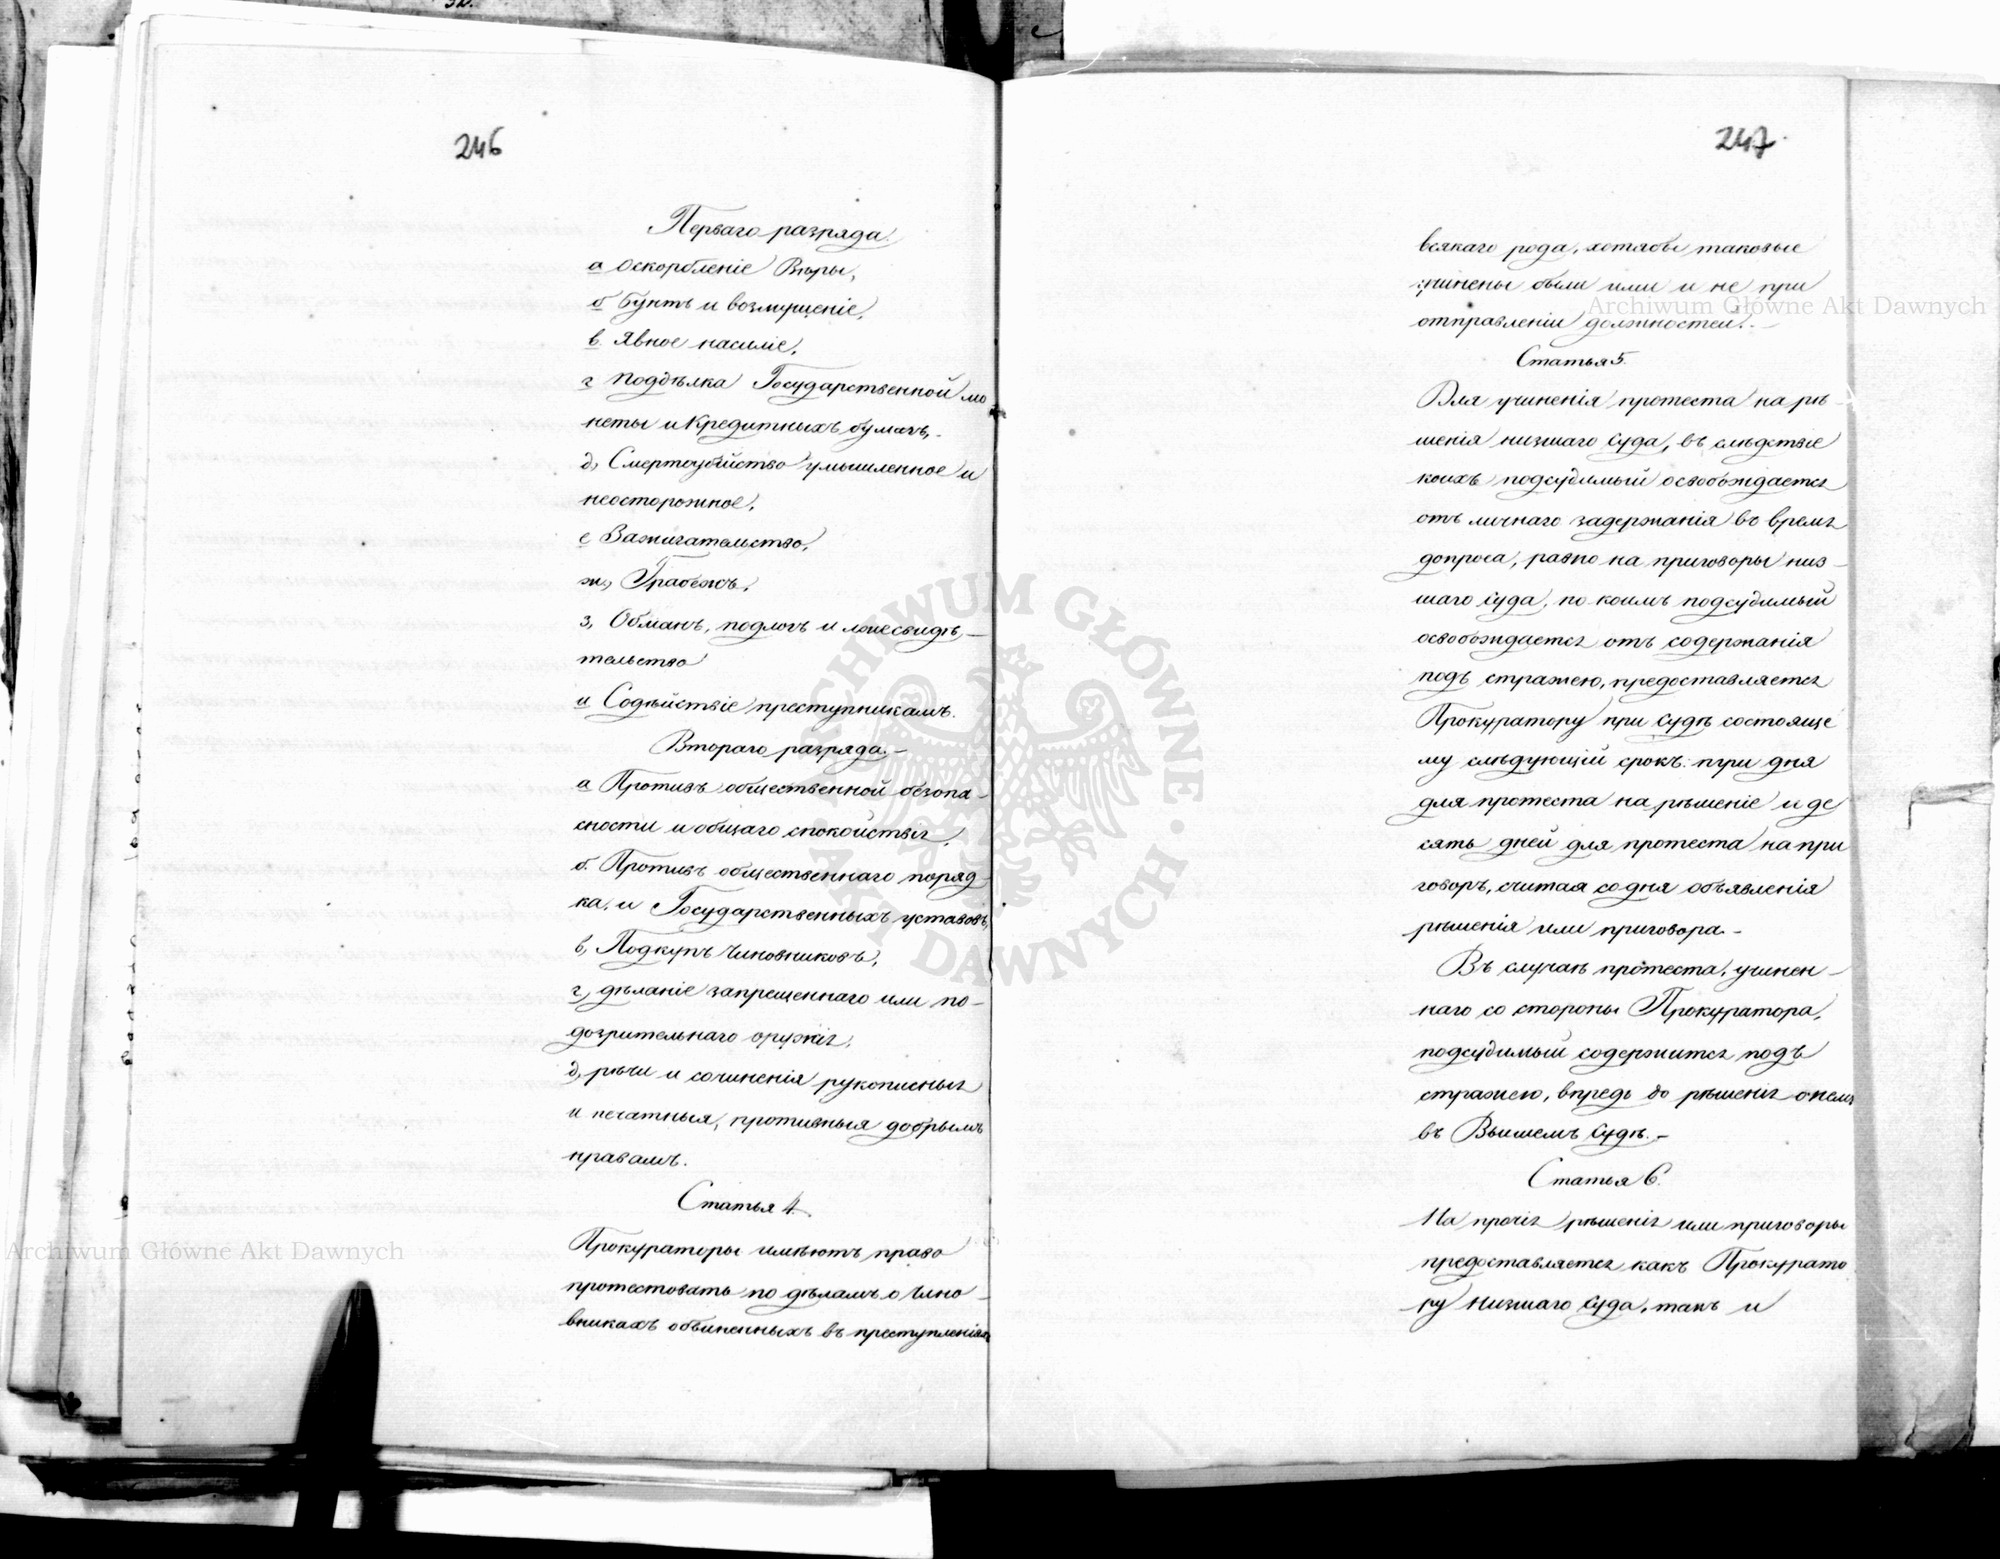 246
Перваго разряда.
а Оскорбленіе Вѣры,
б Бунтъ и возмущеніе,
в. Явное насиліе,
г Поддѣлка Государственной мо
неты и Кредитныхъ бумагъ,
д, Смертоубійство умышленное и
неосторожное,
е Зажигательство,
ж, Грабежъ,
з, Обманъ, подлогъ и лжесвидѣ-
тельство
и Содѣйствіе преступникамъ.
Втораго разряда.-
а Противъ общественной безопа-
сности и общаго спокойствія,
б. Противъ общественнаго поряд-
ка, и Государственныхъ уставовъ,
в, Подкупъ Чиновниковъ,
г, дѣланіе запрещеннаго или по-
дозрительнаго оружія,
д, рѣчи и сочиненія рукописныя
и печатныя, противныя добрымъ
нравамъ.
Статья 4.
Прокураторы имѣютъ право
протестовать по дѣламъ о Чино-
вникахъ обвиненныхъ въ преступленіяхъ
247.
всякаго рода, хотябы таковые
учинены были или и не при
отправленіи должностей.-
Статья 5.
Для учиненія протеста на рѣ-
шенія низшаго Суда, въ слѣдствіе
коихъ подсудимый освобождается
отъ личнаго задержанія во время
допроса, равно на приговоры низ-
шаго Суда, по коимъ подсудимый
освобождается отъ содержанія
подъ стражею, предоставляется
Прокуратору при Судѣ состояще
му слѣдующій срокъ: три дня
для протеста на рѣшеніе и де
сять дней для протеста на при
говоръ, считая со дня объявленія
рѣшенія или приговора.-
Въ случаѣ протеста, учинен-
наго со стороны Прокуратора,
подсудимый содержится подъ
стражею, впредь до рѣшенія о немъ
въ Высшемъ Судѣ.-
Статья 6.
На прочія рѣшенія или приговоры
предоставляется какъ Прокурато
ру Низшаго Суда, такъ и
Archiwum Główne Akt Dawnych
Archiwum Główne Akt Dawnych
ARCHIWUM GŁÓWNE · AKT DAWNYCH ·